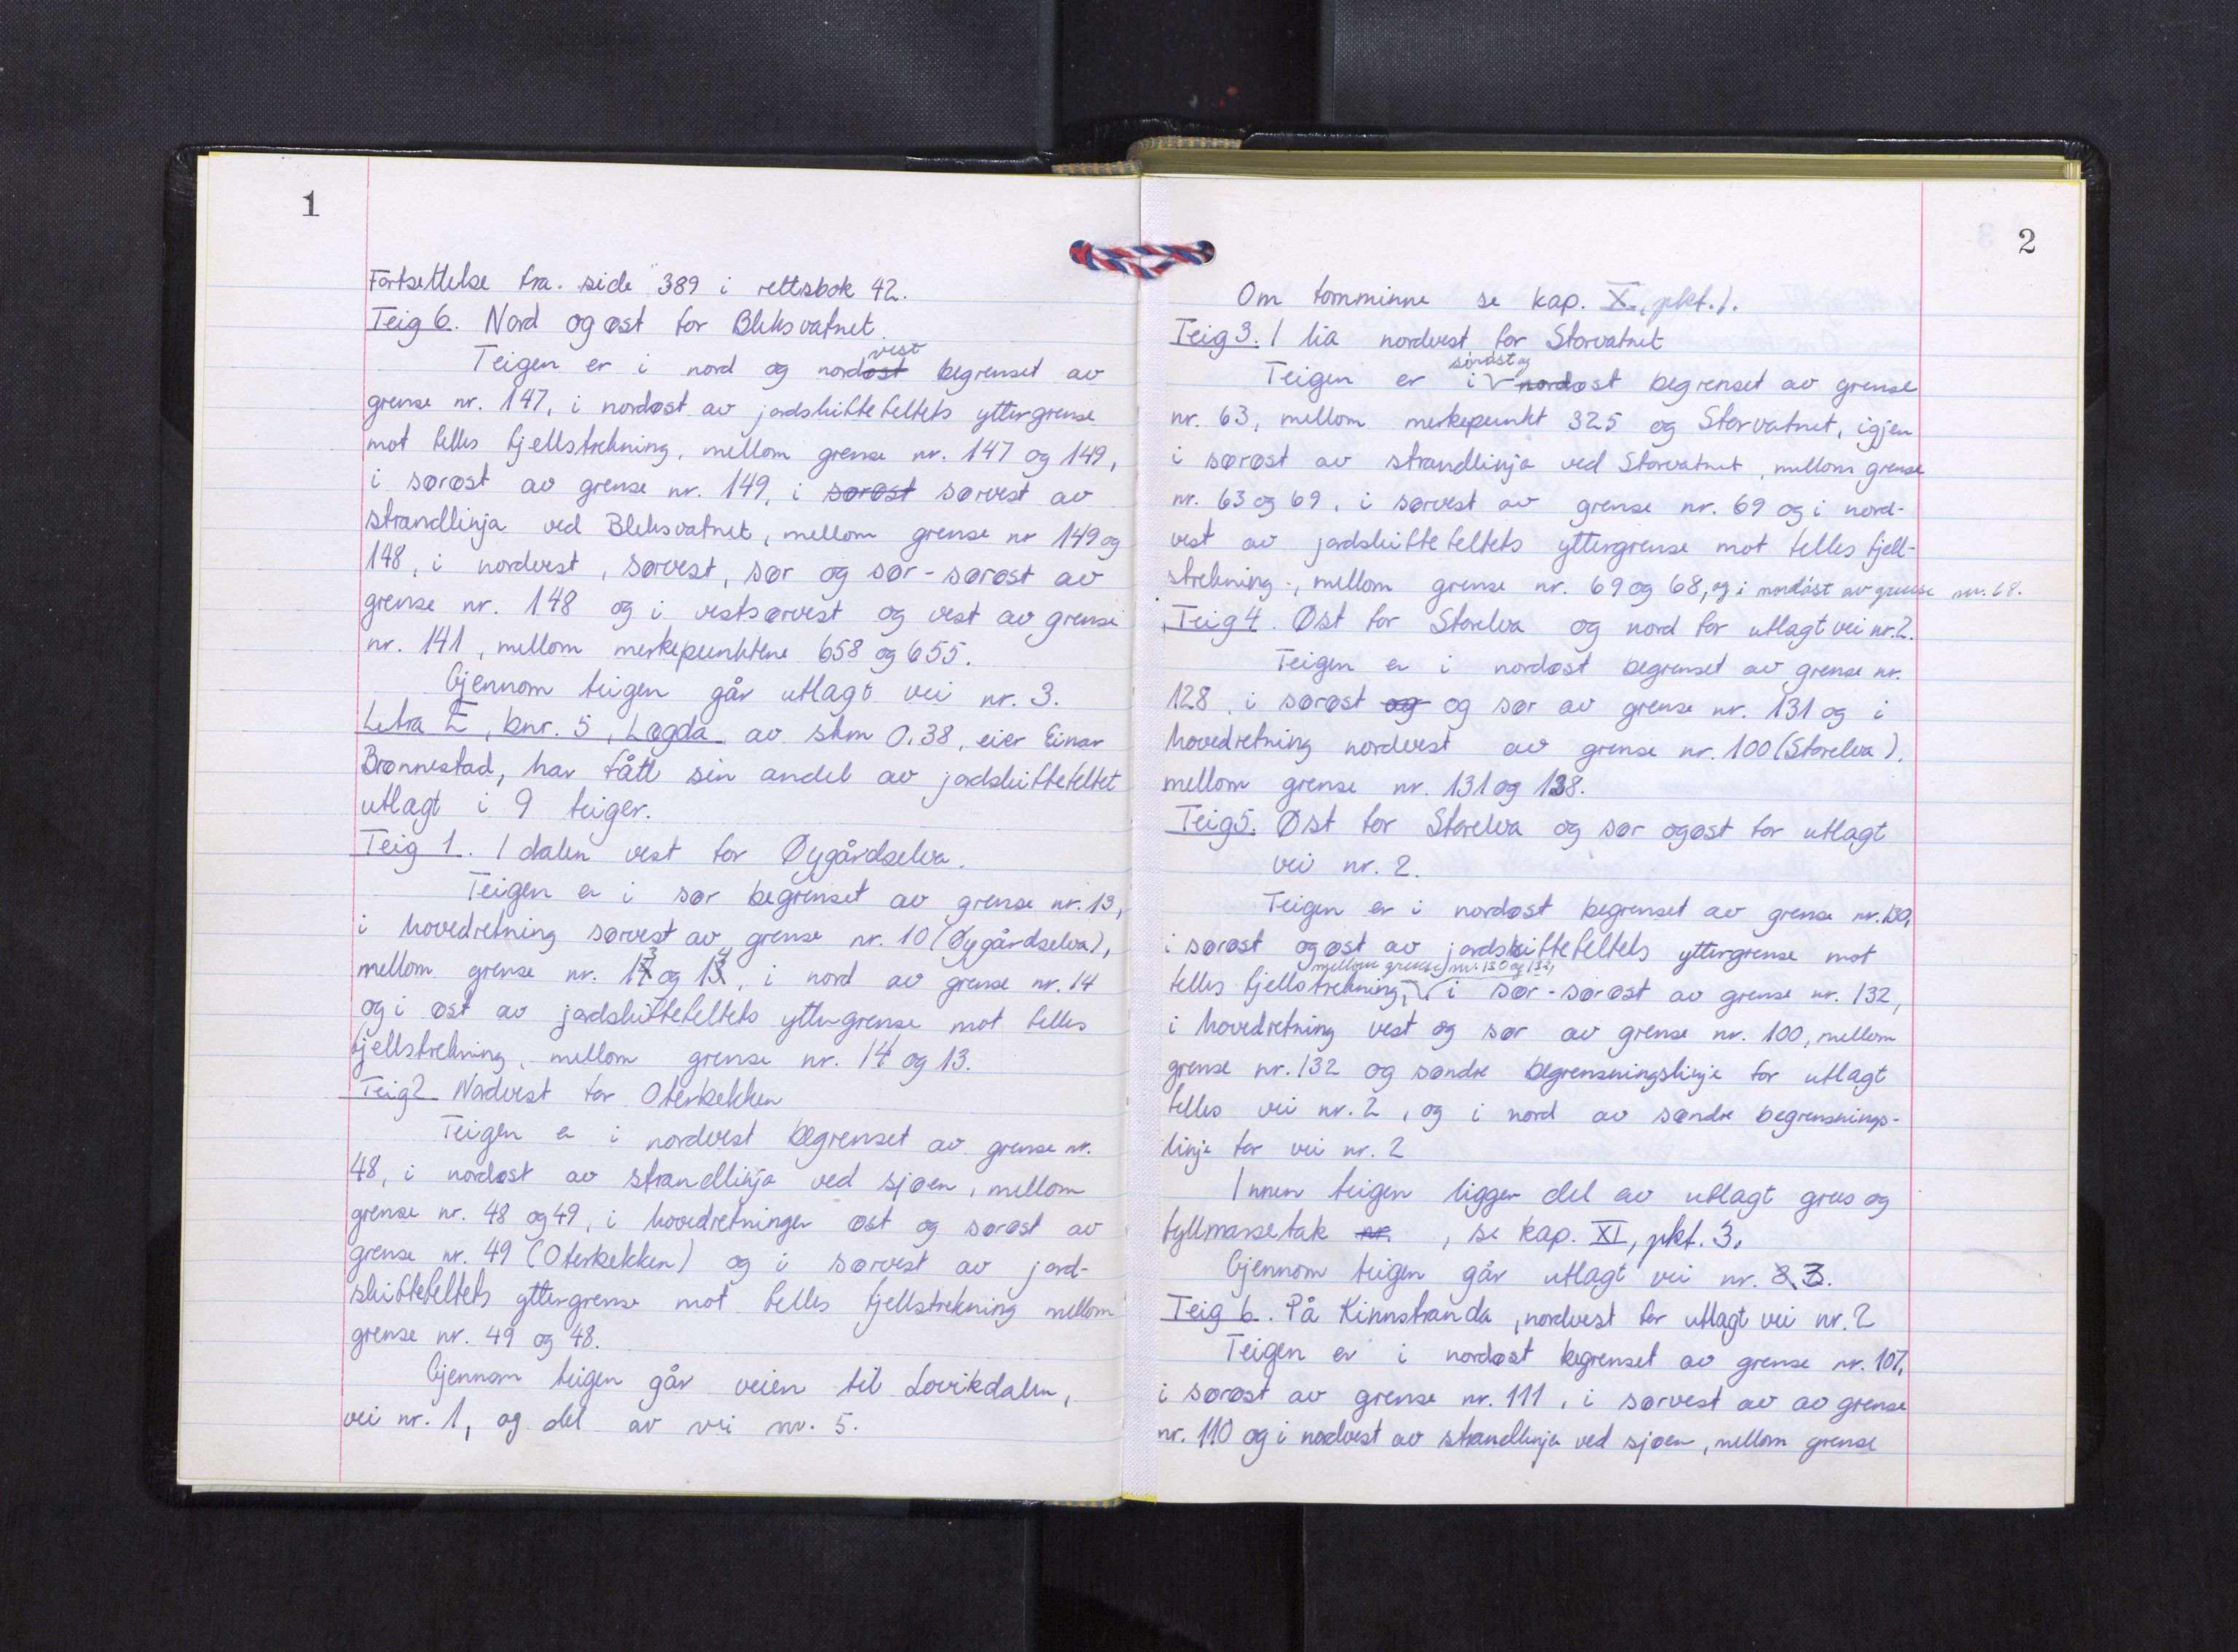 1
Fortsettelse fra side 389 i rettsbok 42.
Teig 6. Nord og øst for Bleksvatnet.
vest
Teigen er i nord og nordøst begrenset av
grense nr. 147, i nordøst av jordskiftefeltets yttergrense
mot felles fjellstrekning, mellom grense nr. 147 og 149,
i sørøst av grense nr. 149, i sørøst sørvest av
strandlinja ved Bleksvatnet, mellom grense nr 149 og
148, i nordvest, sørvest, sør og sør-sørøst av
grense nr. 148 og i vestsørvest og vest av grense
nr. 141, mellom merkepunktene 658 og 655.
Gjennom teigen går utlagt vei nr. 3.
Letra E, bnr. 5, Løgda av skm 0.38, eier Einar
Brønnestad, har fått sin andel av jordskiftefeltet
utlagt i 9 teiger.
Teig 1. I dalen vest for Øygårdselva.
Teigen er i sør begrenset av grense nr. 13,
i hovedretning sørvest av grense nr. 10 (Øygårdselva),
3 4
mellom grense nr. 14 og 13, i nord av grense nr. 14
og i øst av jordskiftefeltets yttergrense mot felles
fjellstrekning, mellom grense nr. 14 og 13.
Teig 2 Nordvest for Oterbekken
Teigen er i nordvest begrenset av grense nr.
48, i nordøst av strandlinja ved sjøen, mellom
grense nr. 48 og 49, i hovedretninger øst og sørøst av
grense nr. 49 (Oterbekken) og i sørvest av jord-
skiftefeltets yttergrense mot felles fjellstrekning mellom
grense nr. 49 og 48.
Gjennom teigen går veien til Lovikdalen,
vei nr. 1, og del av vei nr. 5.
2
Om fornminne se kap. X, pkt. 1.
Teig 3. I lia nordvest for Storvatnet
sørøst og
Teigen er i nordøst begrenset av grense
nr. 63, mellom merkepunkt 325 og Storvatnet, igjen
i sørøst av strandlinja ved Storvatnet, mellom grense
nr. 63 og 69, i sørvest av grense nr. 69 og i nord-
vest av jordskiftefeltets yttergrense mot felles fjell-
strekning, mellom grense nr. 69 og 68, og i nordøst av grense nr. 68.
Teig 4. Øst for Storelva og nord for utlagt vei nr. 2.
Teigen er i nordøst begrenset av grense nr.
128, i sørøst og og sør av grense nr. 131 og i
hovedretning nordvest av grense nr. 100 (Storelva),
mellom grense nr. 131 og 128.
Teig 5. Øst for Storelva og sør og øst for utlagt
vei nr. 2.
Teigen er i nordøst begrenset av grense nr. 130,
i sørøst og øst av jordskiftefeltets yttergrense mot
mellom grense nr. 130 og 132,
felles fjellstrekning, i sør-sørøst av grense nr. 132,
i hovedretning vest og sør av grense nr. 100, mellom
grense nr. 132 og søndre begrensningslinje for utlagt
felles vei nr. 2, og i nord av søndre begrensnings-
linje for vei nr. 2
Innen teigen ligger del av utlagt grus og
fyllmassetak nr. , se kap. XI, pkt. 3.
Gjennom teigen går utlagt vei nr. 3.
Teig 6. På Kinnstranda, nordvest for utlagt vei nr. 2
Teigen er i nordøst begrenset av grense nr. 107,
i sørøst av grense nr. 111, i sørvest av av grense
nr. 110 og i nordvest av strandlinja ved sjøen, mellom grense